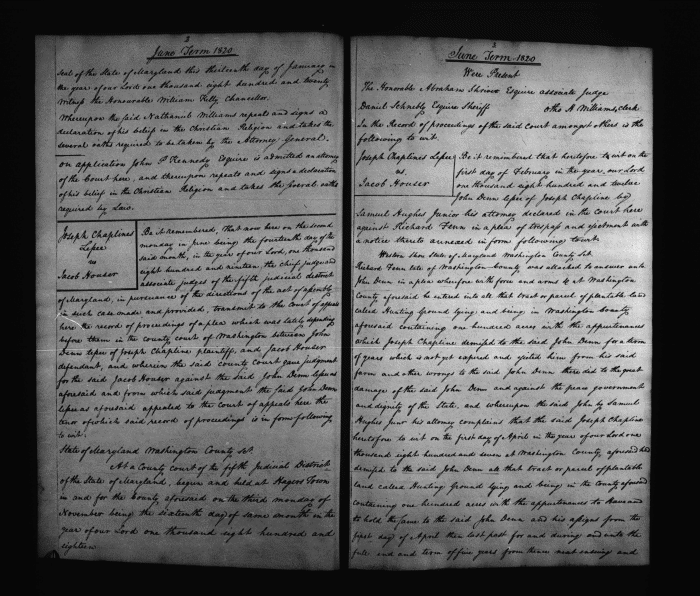 2
June Term 1820
seal of the State of Maryland this thirteenth day of January in
the year of our Lord one thousand eight hundred and twenty
Witness the Honourable William Kilty Chancellor.
Whereupon the said Nathaniel Williams repeats and signs a
declaration of his belief in the Christian Religion and takes the
several oaths required to be taken by the Attorney General.
on application John P Kennedy Esquire is admitted an attorney
of the Court here, and thereupon repeats and signs a declaration
of his belief in the Christian Religion and takes the several oaths
required by Law.
Joseph Chaplines
Lessee
vs
Jacob Houser
Be it remembered, that now here on the second
monday in June being the fourteenth day of the
said month, in the year of our Lord, one thousand
eight hundred and nineteen, the chief judge and
associate judges of the fifth judicial district
of Maryland, in pursuance of the directions of the act of assembly
in such case made and provided, transmit to the Court of appeals
here the record of proceedings of a plea which was lately depending
before them in the county court of Washington between John
Denn lessee of Joseph Chapline plaintiff, and Jacob Houser
defendant, and wherein the said county court gave judgment
for the said Jacob Houser against the said John Denn lessee as
aforesaid and from which said judgment the said John Denn
lessee as aforesaid appealed to the court of appeals here the
tenor of which said record of proceedings is in form following
to wit.
State of Maryland Washington County Sct.
At a County court of the fifth Judicial District
of the State of Maryland, begun and held at Hagers Town
in and for the County aforesaid on the third monday of
November being the sixteenth day of same month in the
year of our Lord one thousand eight hundred and
eighteen
3
June Term 1820
Were Present
The Honorable Abraham Shriver Esquire associate Judge
Daniel Schnebly Esquire Sheriff Otho H Williams, clerk
In the Record of proceedings of the said court amongst others is the
following to wit.
Joseph Chaplines Lessee
vs.
Jacob Houser
Be it remembered that heretofore to wit on the
first day of February in the year our Lord
one thousand eight hundred and twelve
John Denn lessee of Joseph Chapline by
Samuel Hughes Junior his attorney declared in the court here
against Richard Fenn in a plea of trespass and ejectment with
a notice thereto annexed in form following to wit.
Western Shore State of Maryland Washington County Sct.
Richard Fenn late of Washington County was attached to answer unto
John Denn in a plea wherefore with force and arms &c at Washington
County aforesaid he entered into all that tract or parcel of plantable land
called Hunting Ground lying and being in Washington County
aforesaid containing one hundred acres with the appurtenances
which Joseph Chapline demised to the said John Denn for a term
of years which is not yet expired and ejected him from his said
farm and other wrongs to the said John Denn there did to the great
damage of the said John Denn and against the peace government
and dignity of the State, and whereupon the said John by Samuel
Hughes Junr his attorney complains that the said Joseph Chapline
heretofore to wit on the first day of April in the year of our Lord one
thousand eight hundred and seven at Washington County aforesaid had
demised to the said John Denn all that tract or parcel of plantable
land called Hunting Ground lying and being in the County aforesaid
containing one hundred acres with the appurtenances to have and
to hold the same to the said John Denn and his assigns from the
first day of April then last past for and during and unto the
full end and term of five years from thence next ensuing and